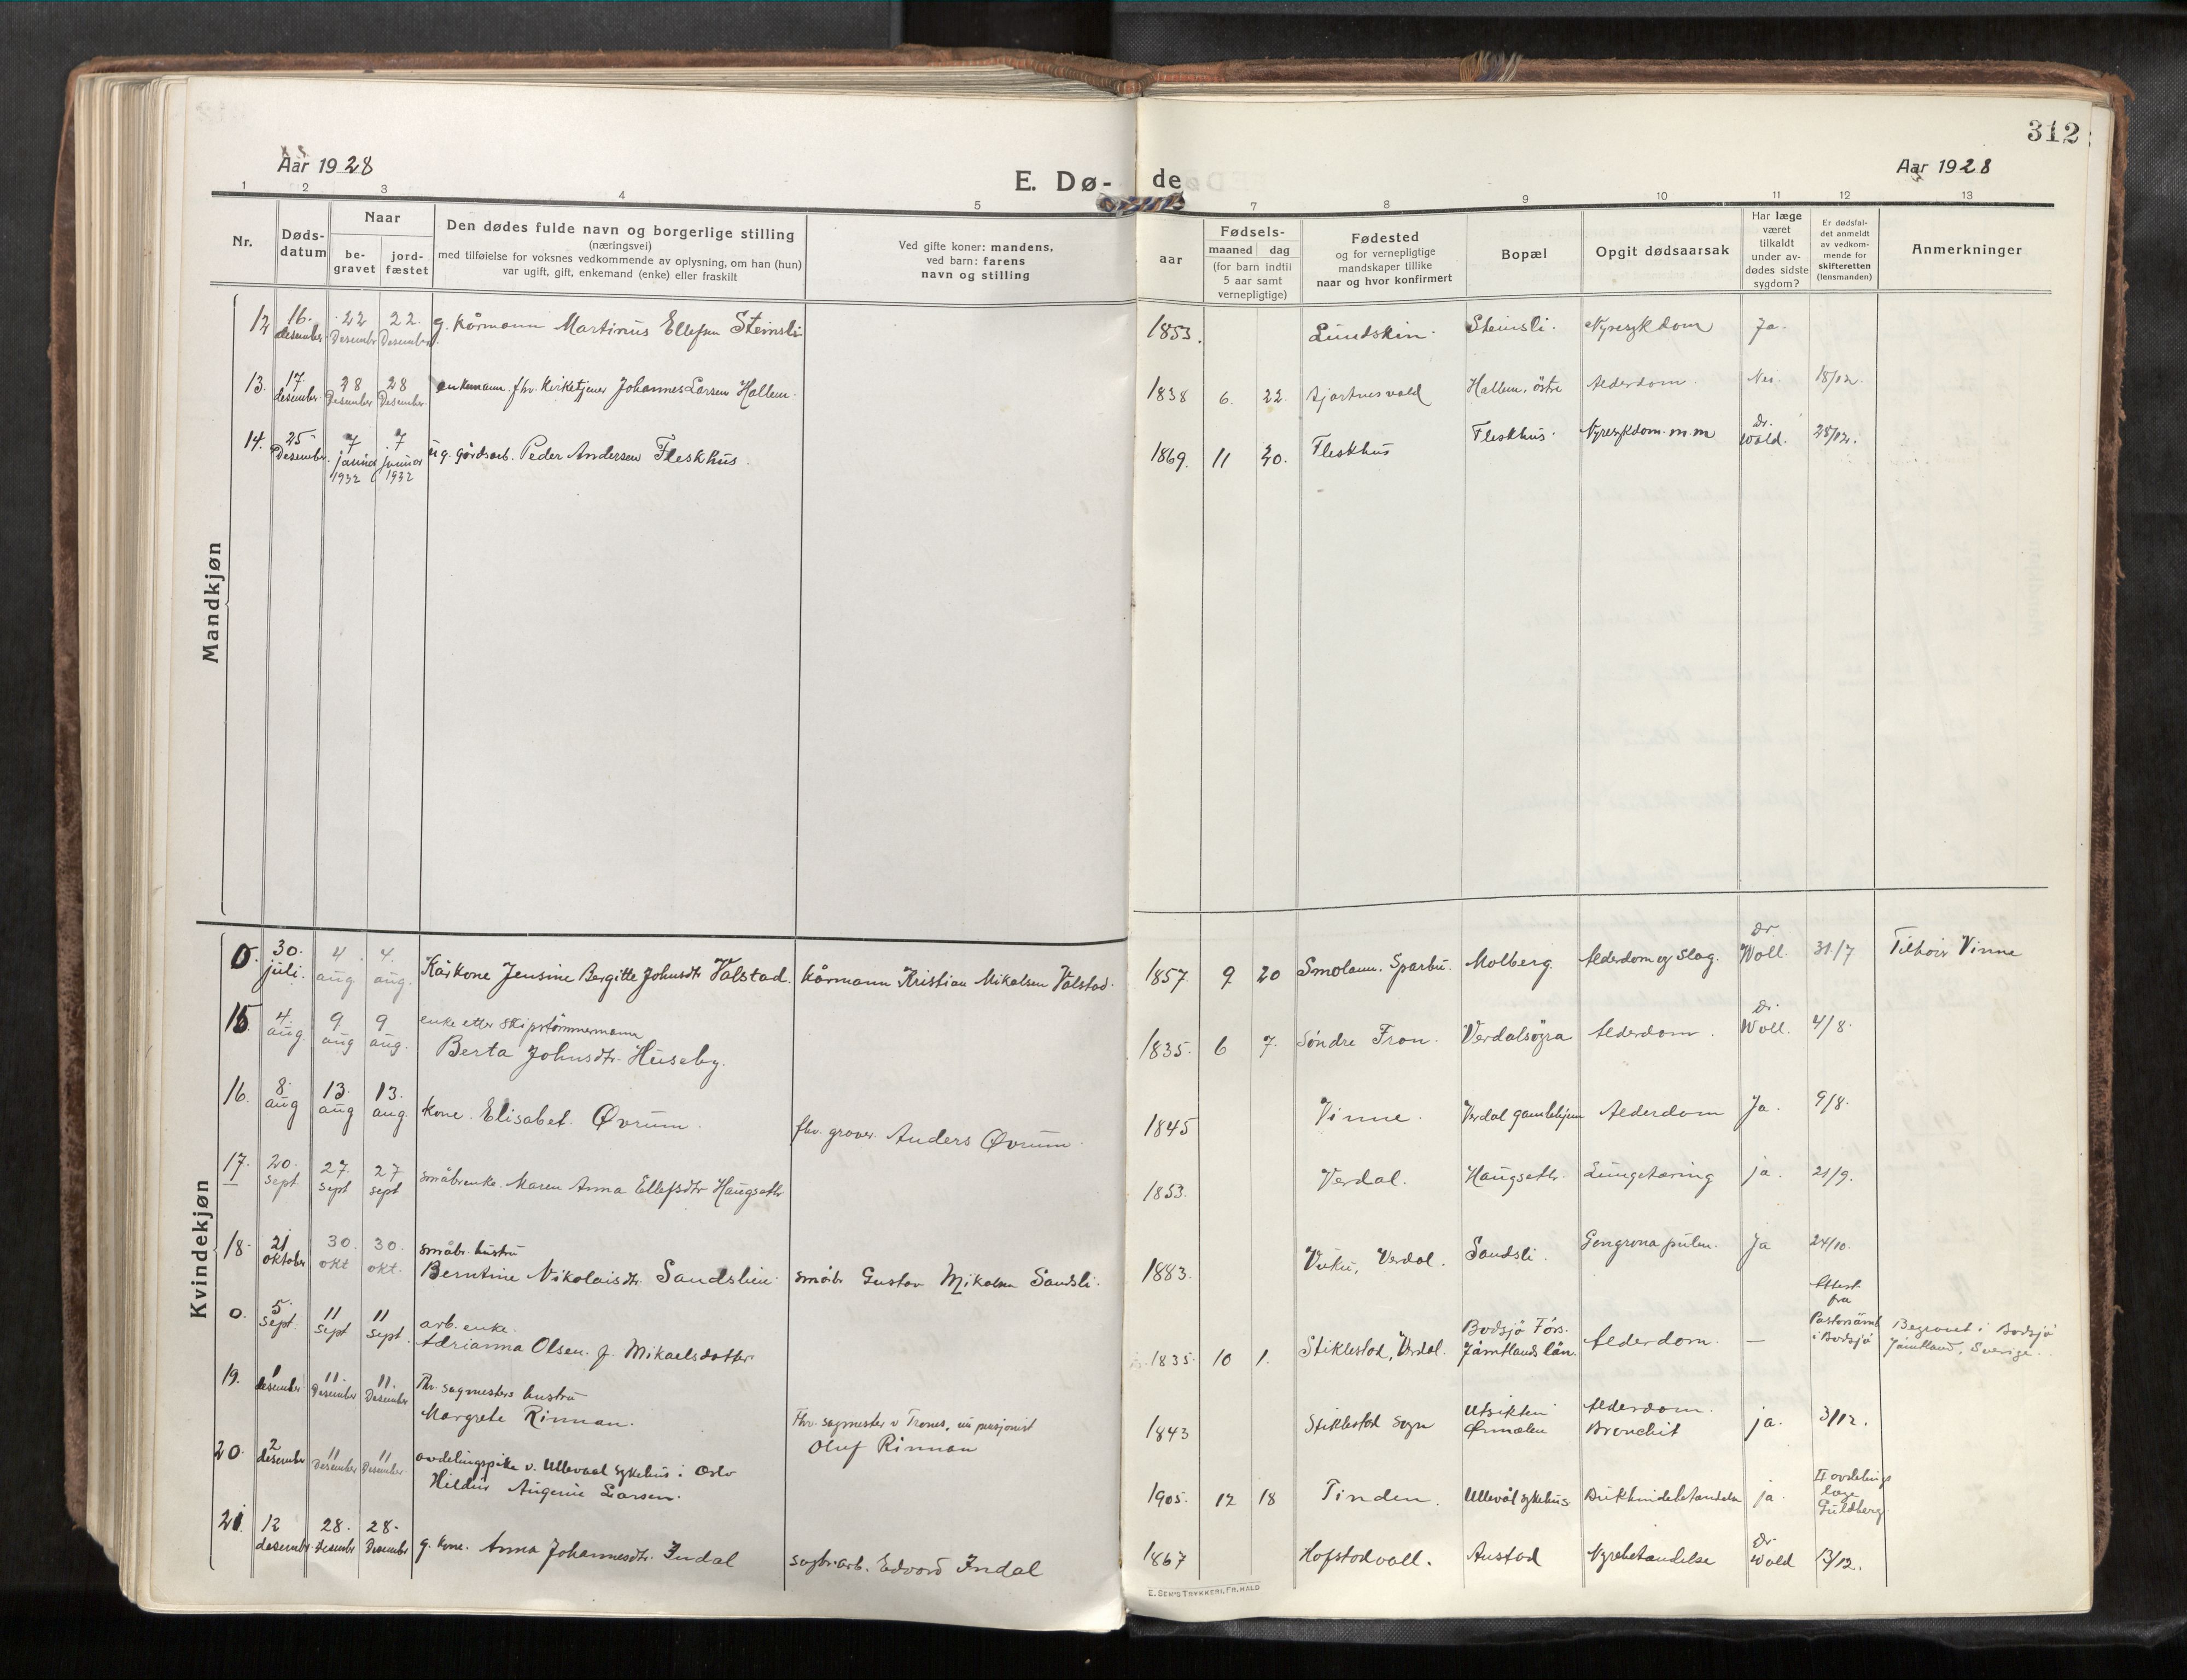 312
Aar 1928
Aar 1928
E. Dø- de
1 2 3 4 5 7 8 9 10 11 12 13
Nr.
Døds-
datum
Naar
be-
gravet
jord-
fæstet
Den dødes fulde navn og borgerlige stilling
(næringsvei)
med tilføielse for voksnes vedkommende av oplysning, om han (hun)
var ugift, gift, enkemand (enke) eller fraskilt
Ved gifte koner: mandens,
ved barn: farens
navn og stilling
Fødsels-
aar
maaned dag
(for barn indtil
5 aar samt
vernepligtige)
Fødested
og for vernepligtige
mandskaper tillike
naar og hvor konfirmert
Bopæl
Opgit dødsaarsak
Har læge
været
tilkaldt
under av-
dødes sidste
sygdom?
Er dødsfal-
det anmeldt
av vedkom-
mende for
skifteretten
(lensmanden)
Anmerkninger
Mandkjøn
12 16. desember 22 Desember 22. Desember g. kårmann Martinus Ellefsen Steinsli 1853. Steinsli. Nyresykdom Ja.
13. 17 desember 28 Desember 28 Desember enkemann. fhv. kirketjener Johannes Larsen Hallem. 1838 6. 22. Hallem, östre Alderdom. Nei. 18/12.
14. 25 Desember. 7 januar 1932 7 januar 1932 ug. gårdsarb. Peder Andersen Fleskhus. 1869. 11 20. Fleskhus Fleskhus. Nyresykdom m.m Dr. Wold. 28/12.
Kvindekjøn
0. 30. juli. 4. aug. 4. aug. Kårkone Jensine Bergitte Johnsdtr Valstad. kårmann Kristian Mikalsen Valstad. 1857. 9 20 Smolann. Sparbu. Molberg. Alderdom og Slag. Dr Woll. 31/7 Tilhör Vinne
15. 4. aug. 9. aug 9 aug. enke etter skipstømmermann
Berta Johnsdtr. Huseby. 1835. 6 7. Söndre Fron. Verdalsöra Alderdom. Dr Woll. 4/8.
16. 8. aug 13. aug 13. aug. kone. Elisabet Øvrum. fhv. graver. Anders Øvrum. 1845 Vinne. Verdal gamlehjem Alderdom Ja. 9/8.
17. 20. sept 27. sept 27 sept småbr.enke. Maren Anna Ellefsdtr Haugseth. 1853. Verdal. Haugseth. Lungetæring ja. 21/9.
18. 21 oktober 30. okt 30. okt. småbr. hustru
Berntine Nikolaisdtr. Sandslien. småbr Gustav Mikalsen Sandsli. 1883. Vuku, Verdal. Sandsli. Ja 24/10.
0. 5. sept. 11 sept 11 sept. arb. enke.
Adrianna Olsen. f. Mikaelsdatter 1835. 10 1. Stiklestad, Verdal. Bodsjö Förs.
Jämtlands län. Alderdom. — Attest fra Pastorsämb. i Bodsjö Begravet i Bodsjö
Jämtland, Sverige.
19. 1 desember 11 Desember 11. Desember Fhv. sagmesters hustru
Margrete Rinnan. Fhv. sagmester v Trones, nu pensjonist
Oluf Rinnan 1843 Stiklestad sogn Utsikten
Ørmelen Alderdom.
Bronchit ja. 3/12.
20. 2 desember 11 Desember 11 Desember avdelingspike v. Ullevaal sykehus i Oslo
Hildur Augenie Larsen. 1905. 12 18 Tinden. Ullevål sykehus. Bukhindebetændelse ja. II avdelings læge Guldberg.
21. 12 desember 28. Desember 28. Desember g. kone. Anna Johannesdtr. Indal sagbr.arb. Edvard Indal 1867 Hofstadvall. Austad Nyrebetændelse Dr Wold 13/12.
E. SEM'S TRYKKERI, FR.HALD